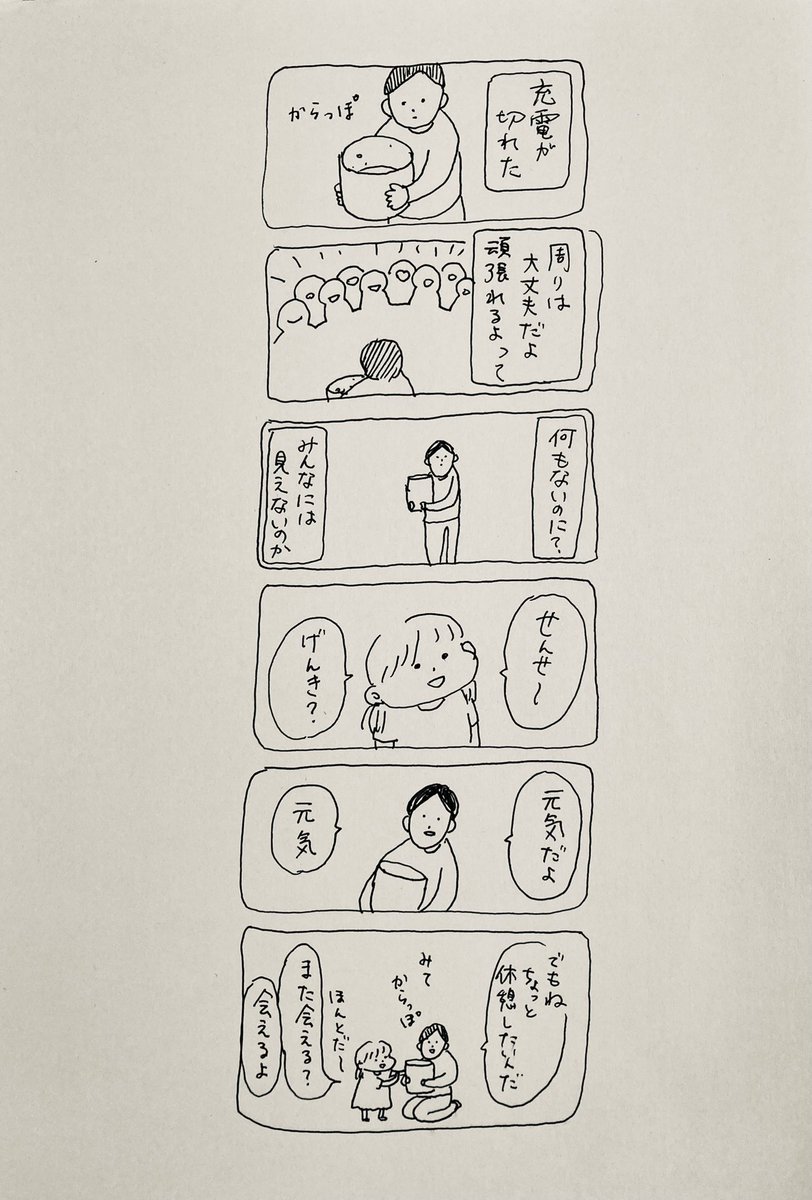 充電が
切れた
からっぽ
周りは
大丈夫だよ
頑張れるよって
何もないのに？
みんなには
見えないのか
せんせ〜
げんき？
元気だよ
元気
でもね
ちょっと
休憩したいんだ
みて
からっぽ
ほんとだ〜
また会える？
会えるよ